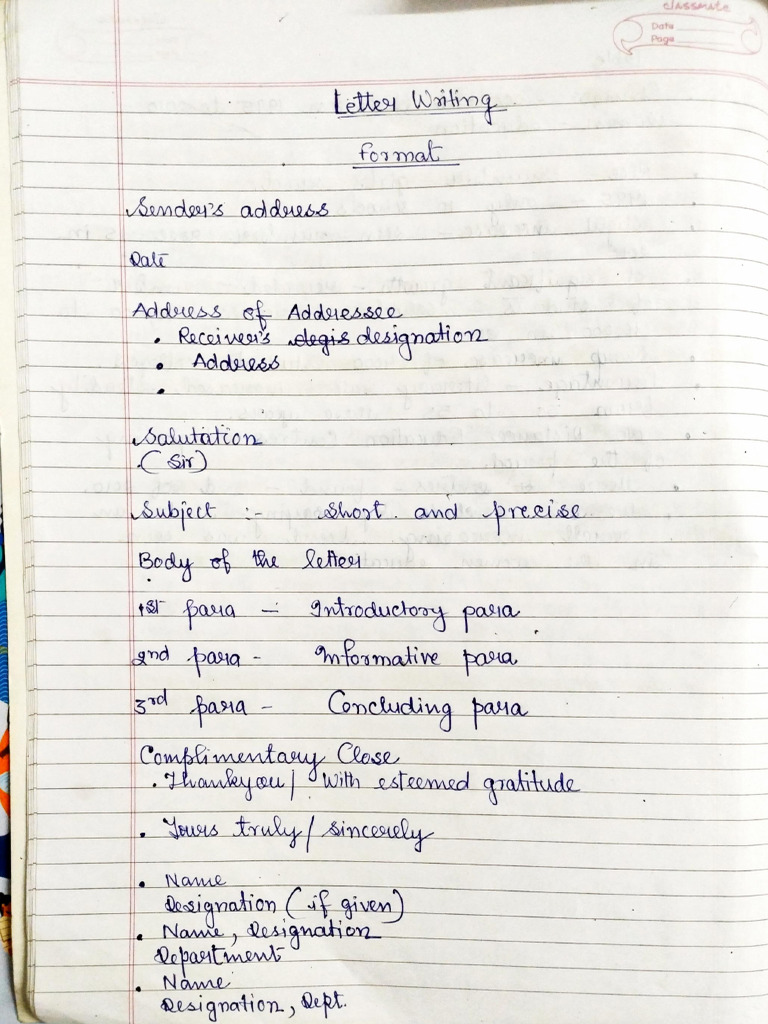 classmate
Date
Page
Letter Writing
Format
Sender's address
Date
Address of Addressee
• Receiver's degis designation
• Address
•
Salutation
(Sir)
Subject :- Short and precise
Body of the letter
1st para - Introductory para
2nd para - Informative para
3rd para - Concluding para
Complimentary Close
• Thankyou / With esteemed gratitude
• Yours truly / Sincerely
• Name
Designation (if given)
• Name, Designation
Department
• Name
Designation, Dept.